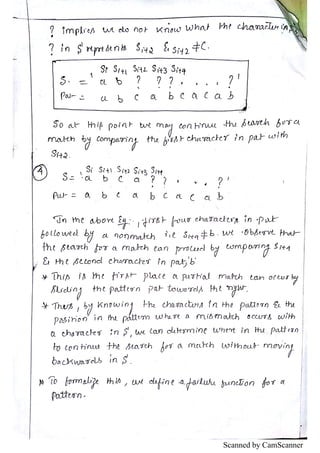 ? implies we do not know what the character in
? in S represents Si+2 & Si+2 ≠ C.
Si Si+1 Si+2 Si+3 Si+4
S = ' a b ? ? ? . . . . ? '
Pat = ' a b c a b c a c a b
So at this point we may continue the search for a
match by comparing the first character in pat with
Si+2.
④ Si Si+1 Si+2 Si+3 Si+4
S = ' a b c a ? ? . . . ? '
Pat = a b c a b c a c a b
In the above Eg:, first four characters in pat
followed by a nonmatch i.e Si+4 ≠ b. we observe that
the search for a match can proceed by comparing Si+4
& the second character in pat 'b'
* This is the first place a partial match can occur by
sliding the pattern pat towards the right.
* Thus, by knowing the characters in the pattern & the
position in the pattern where a mismatch occurs with
a character in S, we can determine where in the pattern
to continue the search for a match without moving
backwards in S.
* To formalize this, we define a failure function for a
pattern.
Scanned by CamScanner